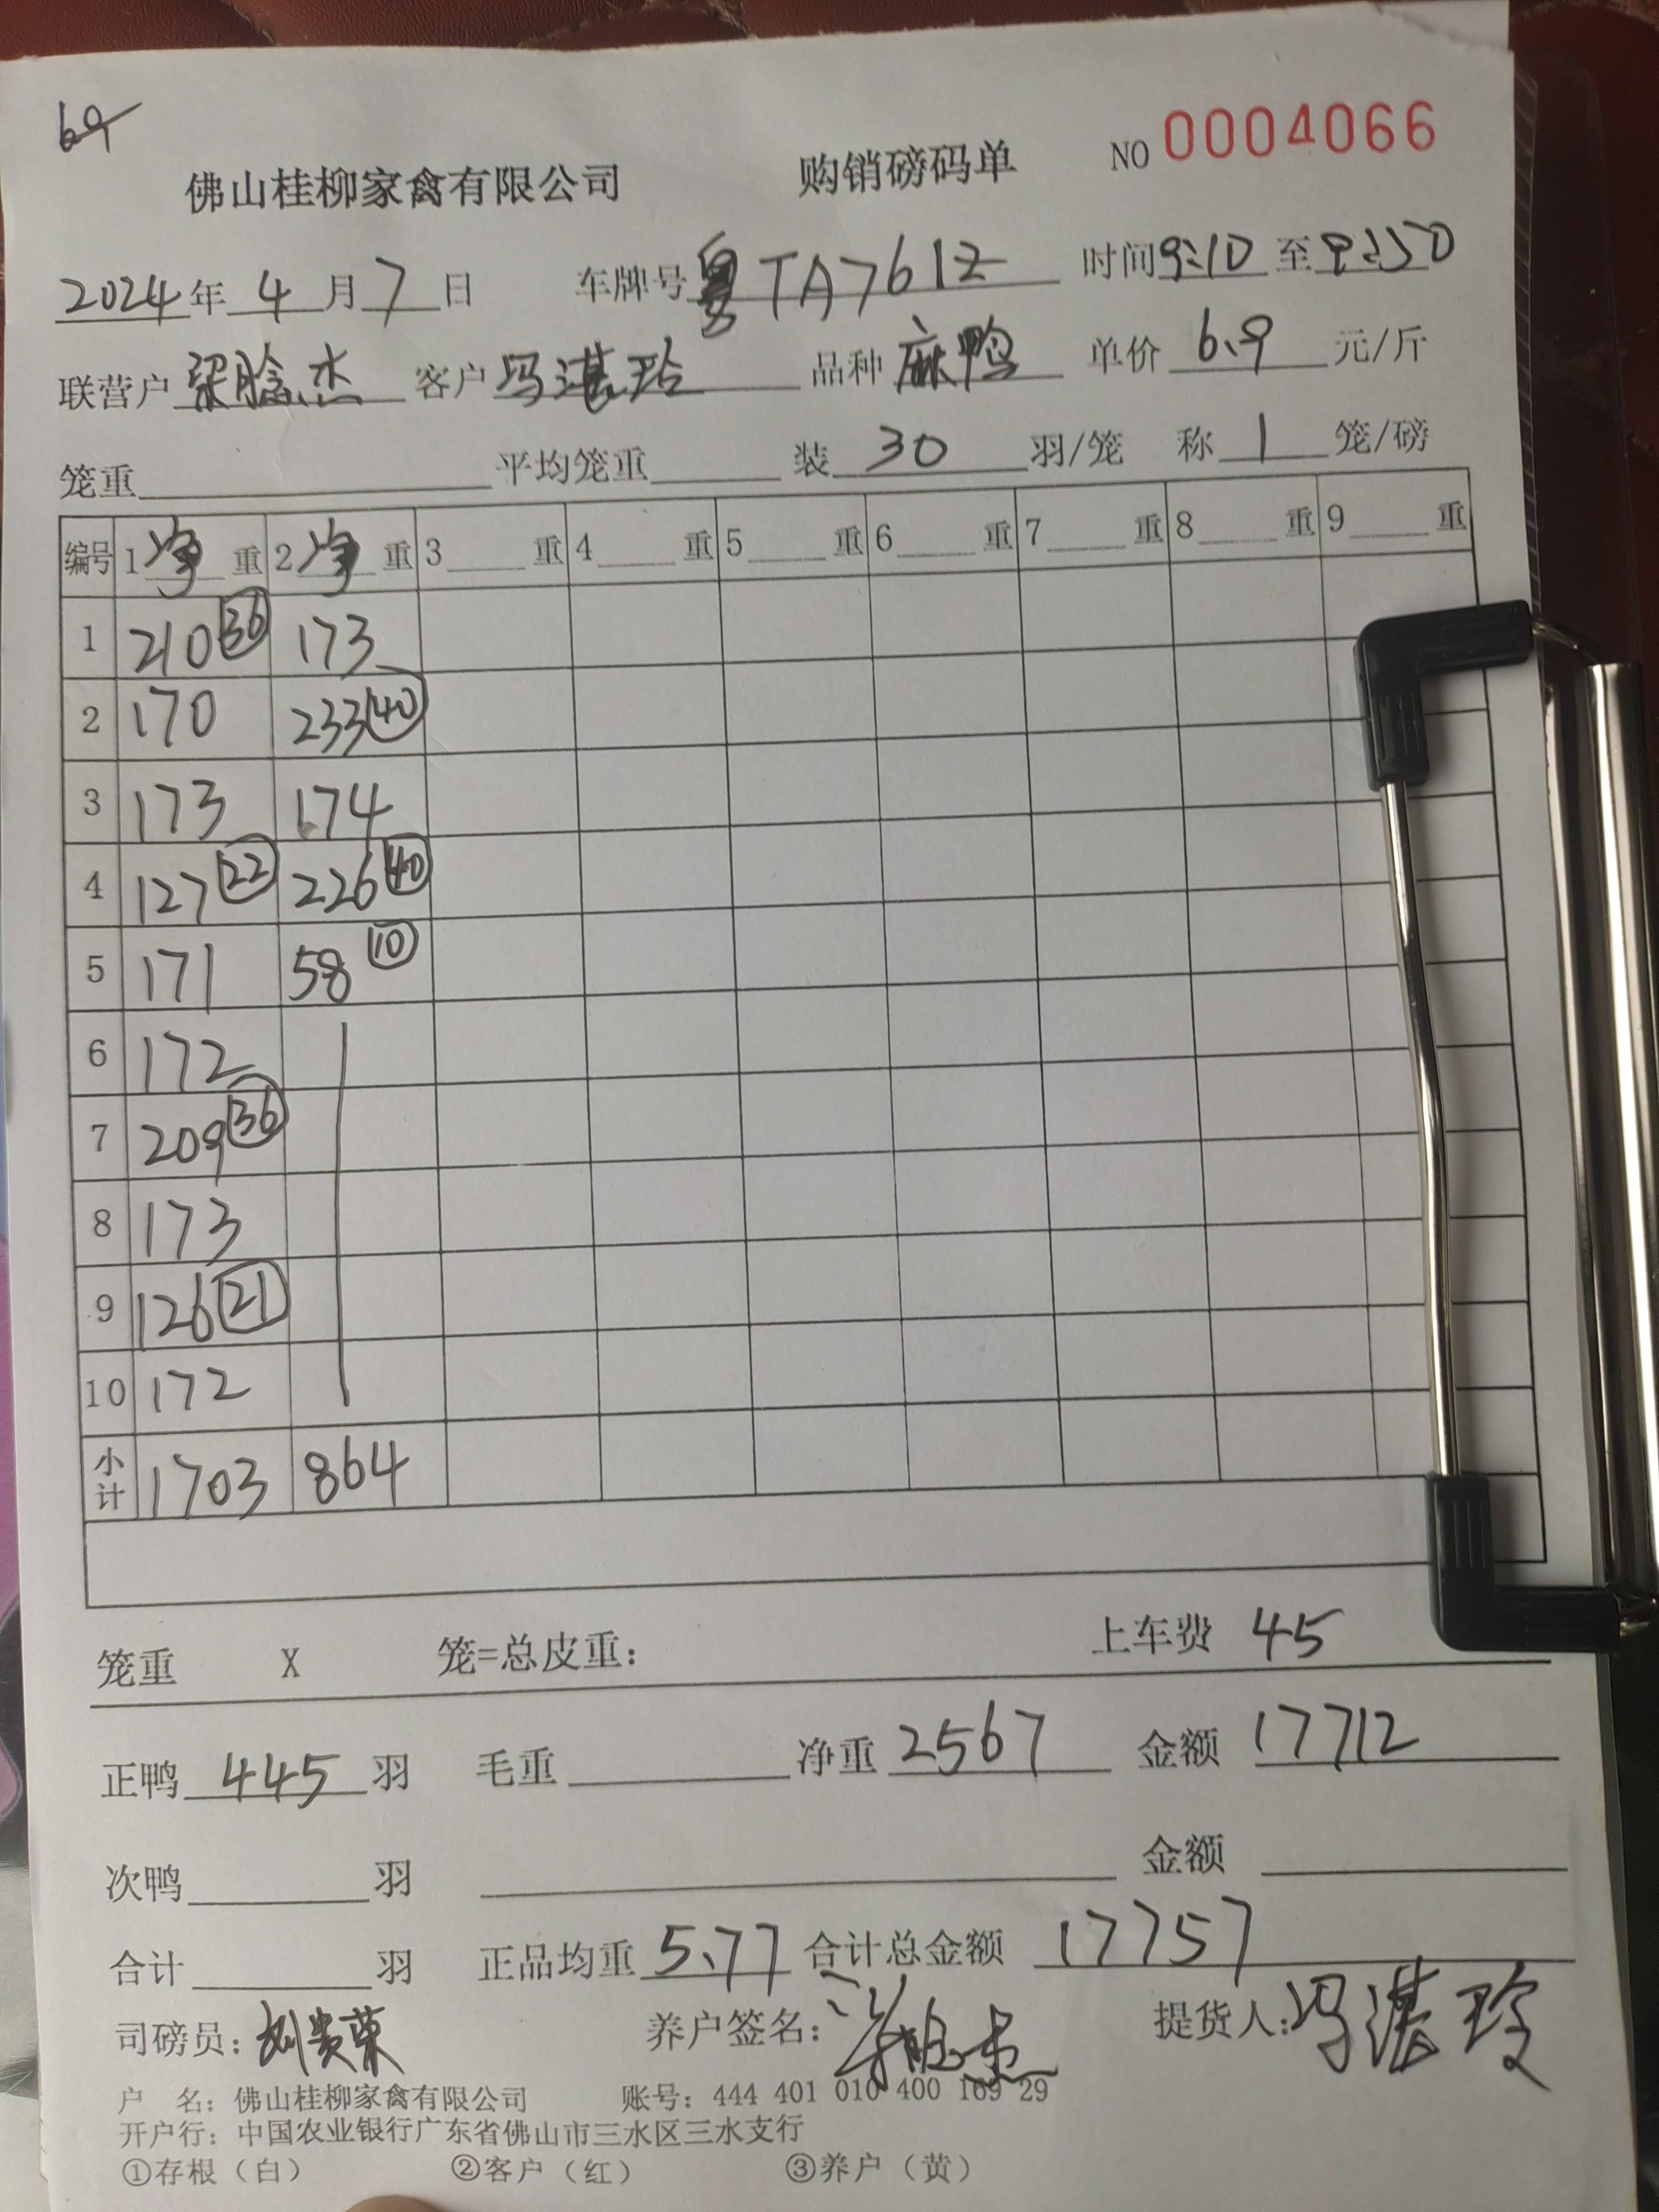 69
佛山桂柳家禽有限公司 购销磅码单 NO 0004066
2024年 4月 7日 车牌号 粤TA7612 时间 9:10 至 9:50
联营户 梁 杰 客户 冯湛玲 品种 麻鸭 单价 6.9 元/斤
笼重 平均笼重 装 30 羽/笼 称 1 笼/磅
编号 1净重 2净重 3 重 4 重 5 重 6 重 7 重 8 重 9 重
1 210 36 173
2 170 233 40
3 173 174
4 127 22 226 40
5 171 58 10
6 172
7 209 36
8 173
9 126 21
10 172
小计 1703 864
笼重 X 笼=总皮重: 上车费 45
正鸭 445 羽 毛重 净重 2567 金额 17712
次鸭 羽 金额
合计 羽 正品均重 5.77 合计总金额 17757
司磅员: 刘贵荣 养户签名: 杰 提货人: 冯湛玲
户 名: 佛山桂柳家禽有限公司 账号: 444 401 010 400 169 29
开户行: 中国农业银行广东省佛山市三水区三水支行
①存根(白) ②客户(红) ③养户(黄)